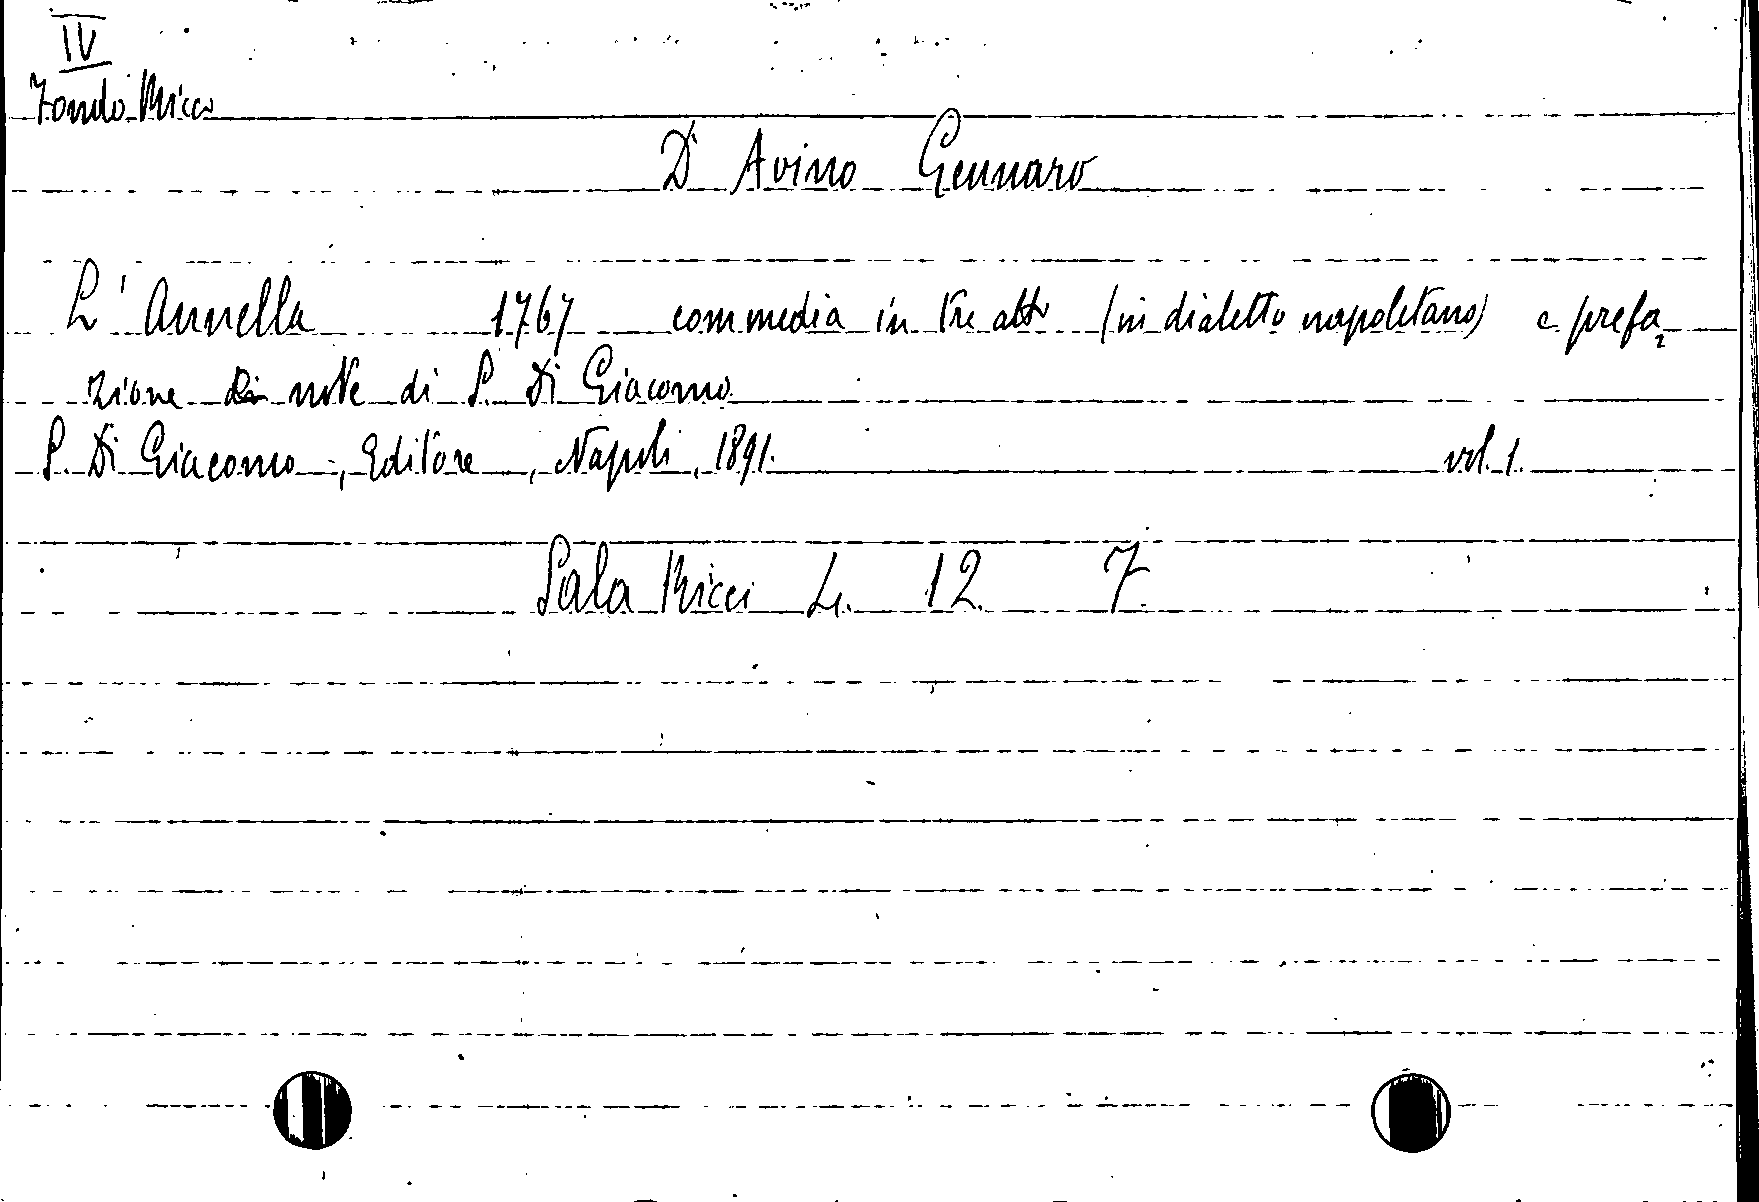 IV
Fondo Ricci
D' Avino Gennaro
L' Annella 1767 commedia in tre atti (in dialetto napoletano) e prefa
zione di note di S. Di Giacomo
S. Di Giacomo, Editore, Napoli, 1891. vol. 1.
Sala Ricci L. 12 7